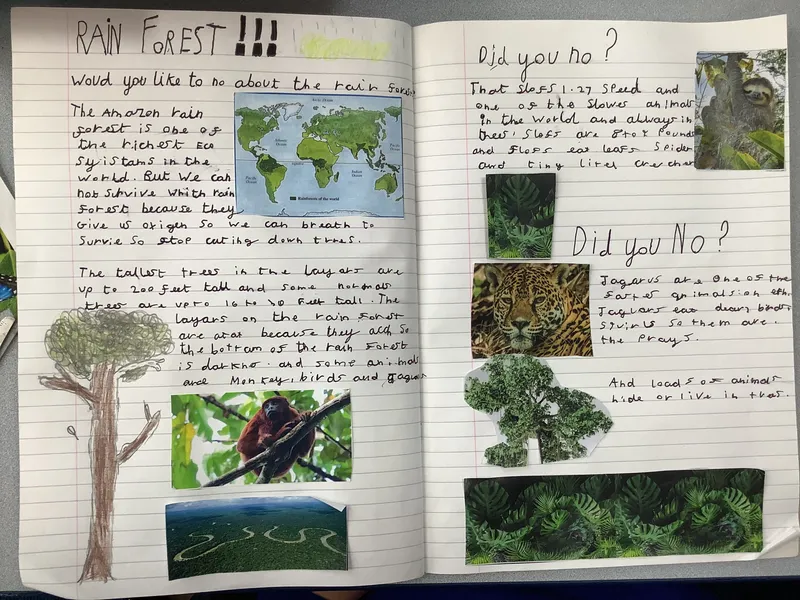 RAIN FOREST !!!
Woud you like to no about the rain forest
The Amazon rain
forest is one of
the richest Eco
Syistams in the
world. But we can
not survive which rain
forest because they
Give us oxigen so we can breath to
Survie so stop cuting down trres.
Rainforests of the world
The tallest trees in the layars are
up to 200 feet tall and some normals
trees are up to 16 to feet tall. The
layars on the rain forest
are because they ach So
the bottom of the rain forest
is darkne. and some animals
are Monkey, birds and Jaguars
Did you no ?
That slofs 1.27 speed and
one of the Slowes animals
in the world and always in
trees! Slofs are 8 to Pounds
and slofs eat leafs Spider
and tiny litel crechers
Did you No ?
Jagarus are One of the
fastes animals on
Jaguars eat dear, birds
Squirls so them are.
the Prays.
And loads of animals
hide or live in tres.